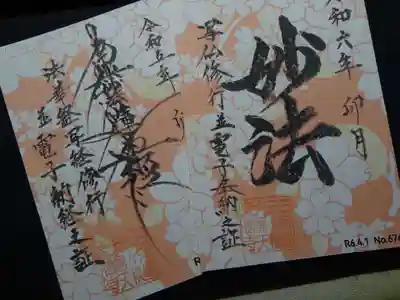 令和六年 卯月
妙法
写仏修行並電子奉納之証
R6.4.1 No.674
令和五年
南無妙法蓮華経
法華経写経修行
並電子納経之証
R